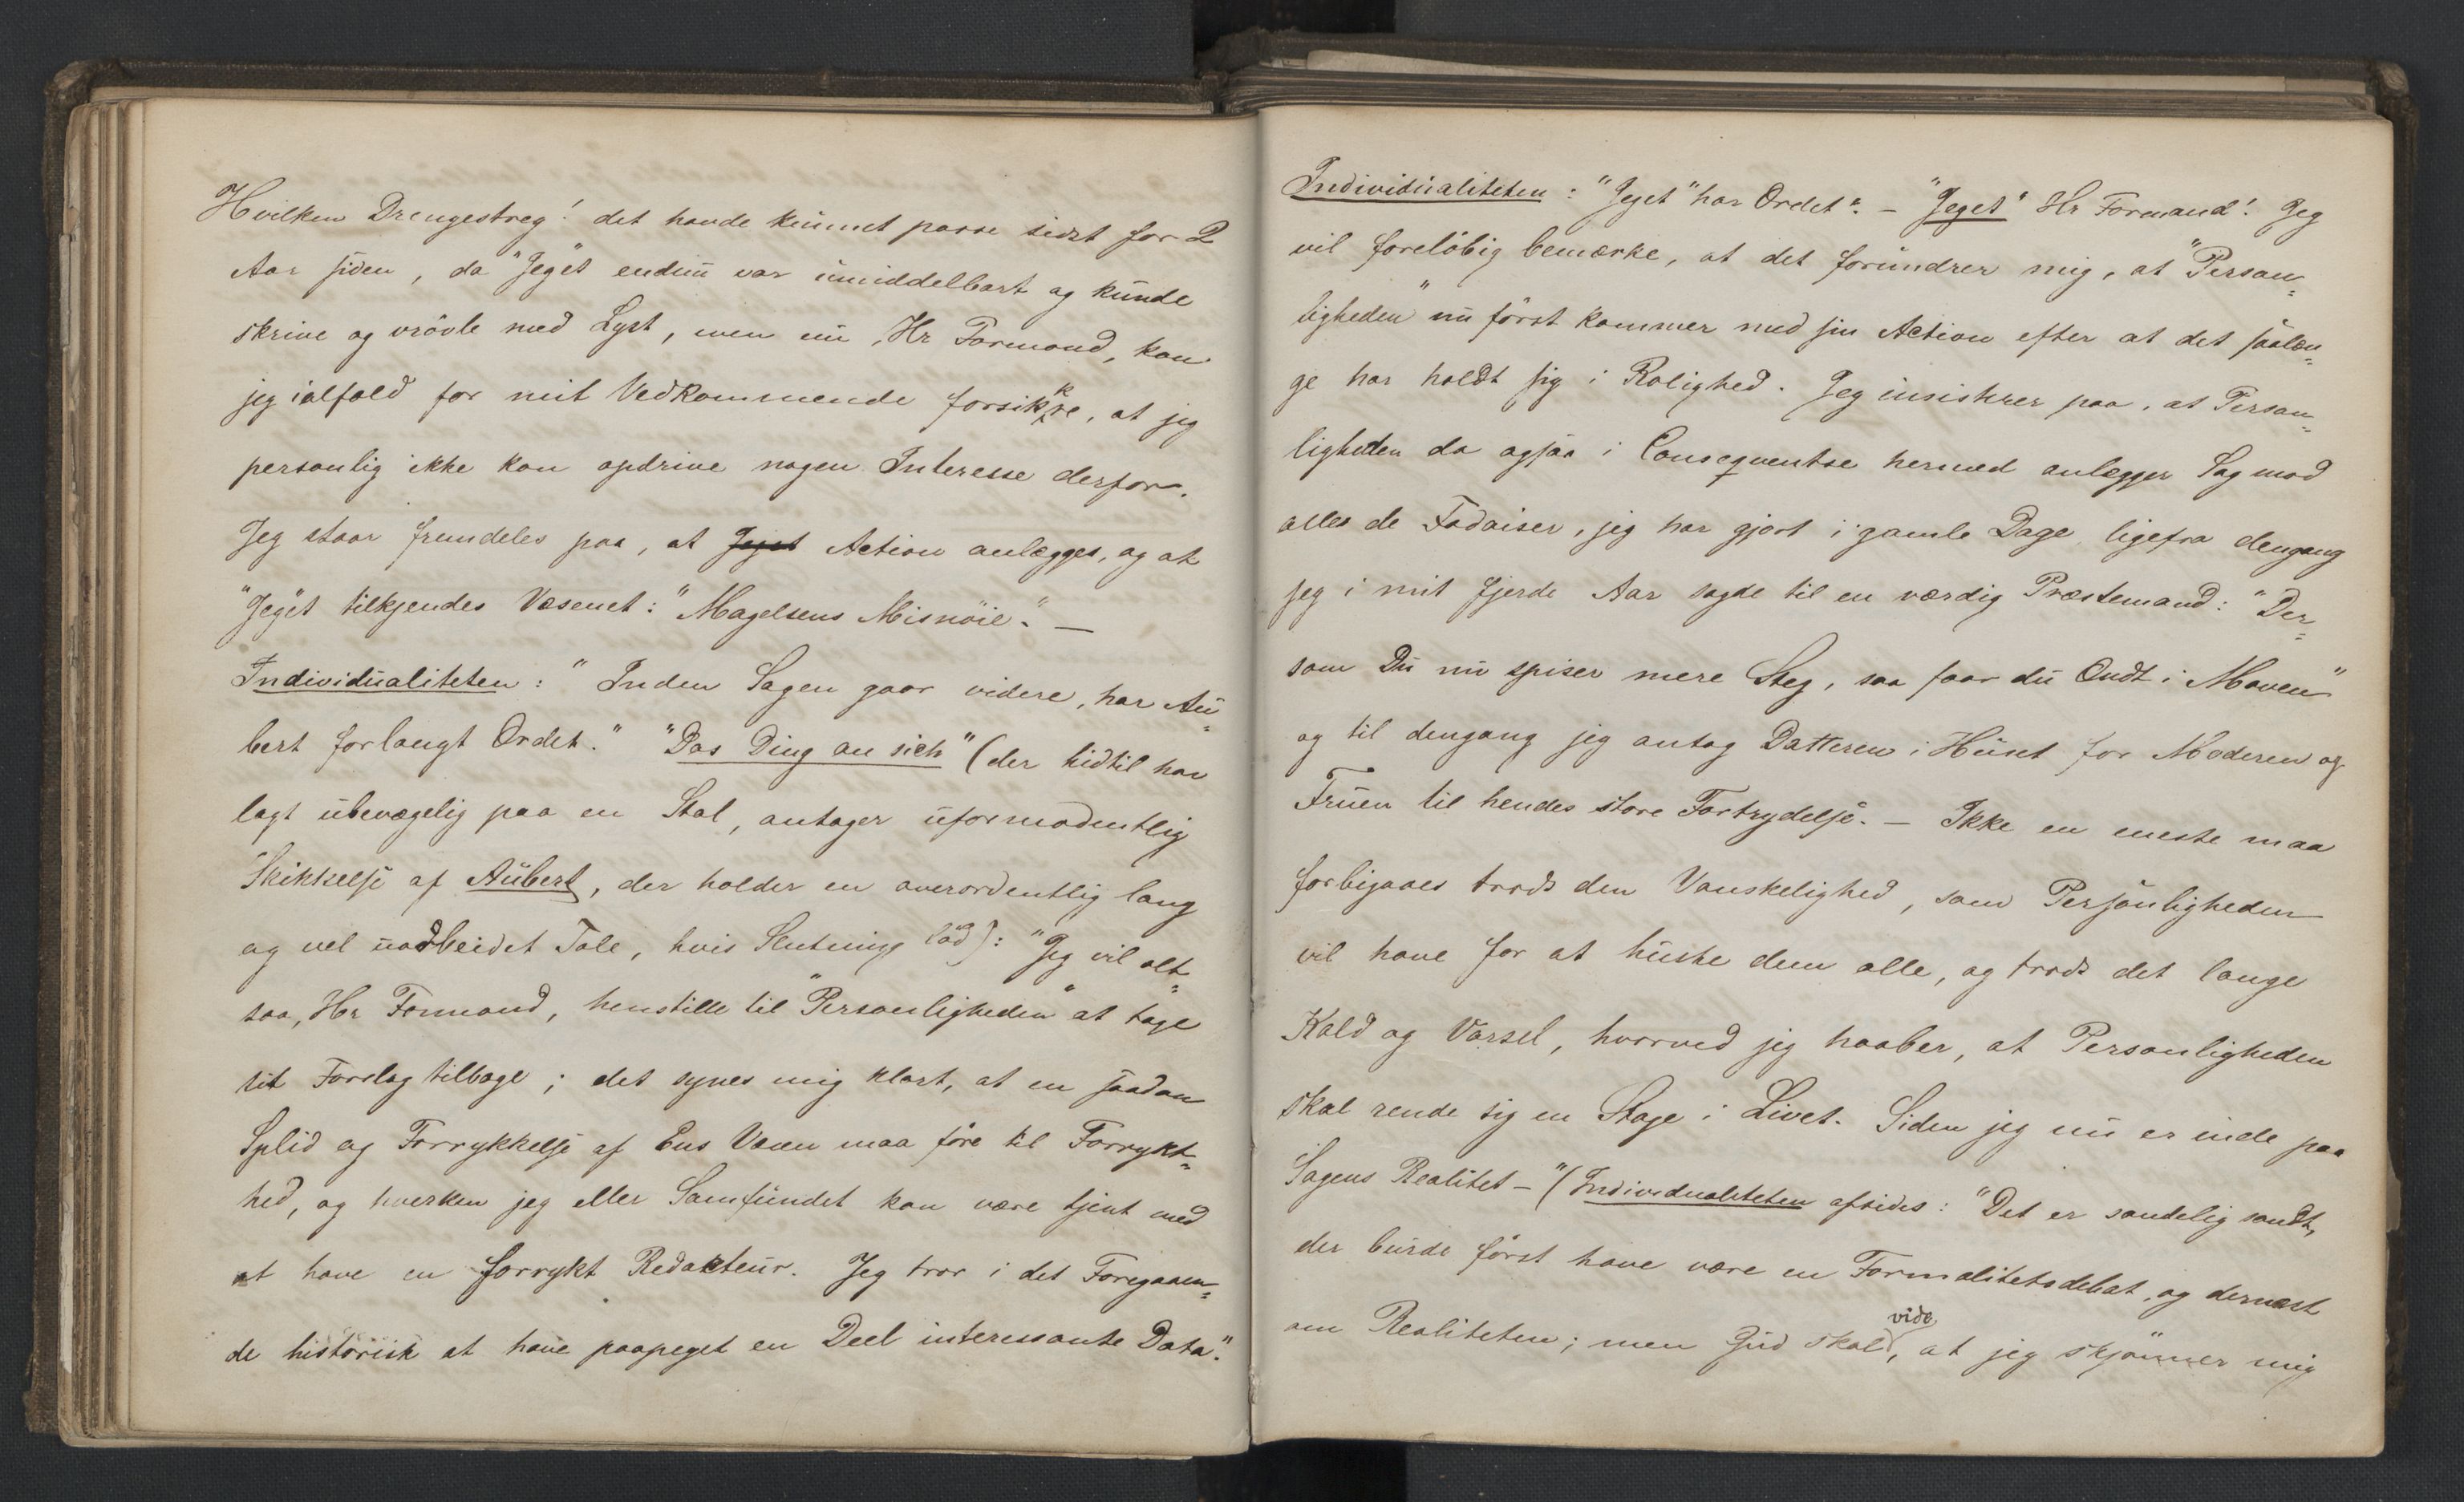 Hvilken Drengestreg! det havde kunnet passe sidst for 2
Aar siden, da "Jeget" endnu var umiddelbart og kunde
skrive og vrövle med Lyst, men nu, Hr Formand, kan
jeg ialfald for mit Vedkommende forsikkre, at jeg
personlig ikke kan opdrive nogen Interesse derfor.
Jeg staar fremdeles paa, at Jeget Action anlægges, og at
"Jeget" tilkjendes Væsenet: "Magelsens Misnöie". —
Individualiteten: "Inden Sagen gaar videre, har Au-
bert forlangt Ordet." "Das Ding an sich" (der hidtil har
lagt ubevægelig paa en Stol, antager uformodentlig
Skikkelse af Aubert, der holder en overordentlig lang
og vel uadbeidet Tale, hvis Slutning löd): "Jeg vil alt-
saa, Hr Formand, henstille til "Personligheden" at tage
sit Forslag tilbage; det synes mig klart, at en saadan
Splid og Forrykkelse af Ens Væsen maa före til Forrykt-
hed, og hverken jeg eller Samfundet kan være tjent med
at have en forrykt Redakteur. Jeg tror i det Foregaaen-
de historisk at have paapeget en Deel interessante Data."
Individualiteten: "Jeget" har Ordet". — "Jeget" Hr Formand! Jeg
vil forelöbig bemærke, at det forundrer mig, at "Person-
ligheden" nu först kommer med sin Action efter at det saalæn-
ge har holdt sig i Rolighed. Jeg insisterer paa, at Person-
ligheden da ogsaa i Consequentse hermed anlægger Sag mod
alles de Fadaiser, jeg har gjort i gamle Dage, ligefra dengang
jeg i mit fjerde Aar sagde til en værdig Præstemand: "Der-
som Du nu spiser mere Steg, saa faar du Ondt i Maven"
og til dengang jeg antog Datteren i Huset for Moderen og
Fruen til hendes store Fortrydelse. — Ikke en eneste maa
forbigaaes trods den Vanskelighed, som Personligheden
vil have for at huske dem alle, og trods det lange
Kald og Varsel, hvorved jeg haaber, at Personligheden
skal rende sig en Stage i Livet. Siden jeg nu er inde paa
Sagens Realitet —" (Individualiteten afsides: "Det er sandelig sandt,
der burde först have være en Formalitetsdebat, og dernæst
om Realiteten; men Gud skal vide, at jeg skjönner mig